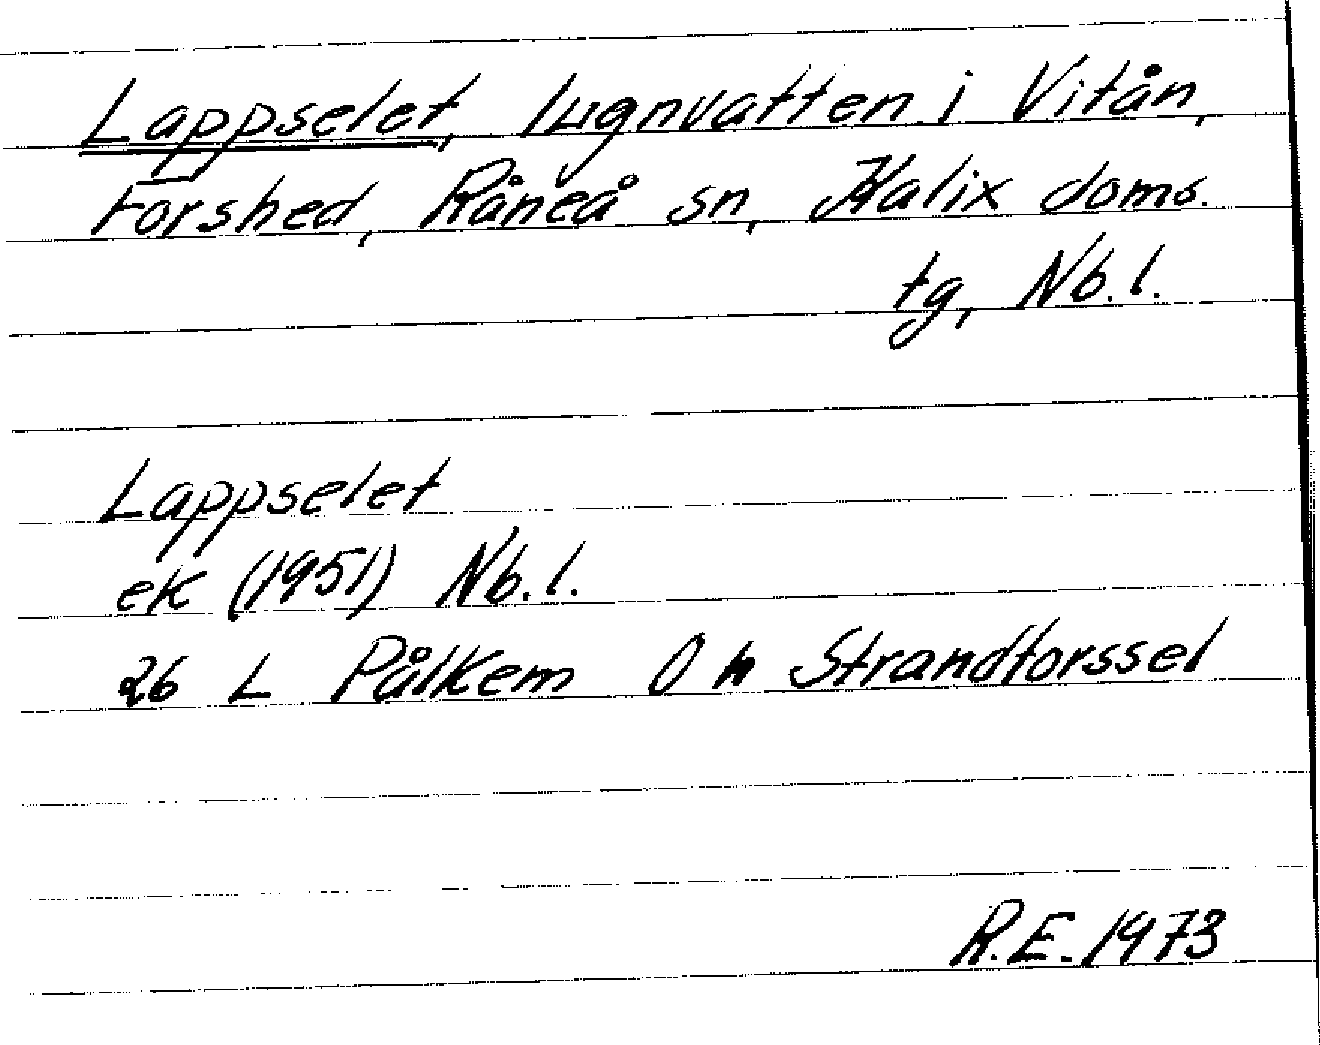 Lappselet, lugnvatten i Vitån,
Forshed, Råneå sn, Kalix doms.
tg, Nb.l.
Lappselet
ek (1951) Nb.l.
26 L Pålkem O n Strandforssel
R.E. 1973